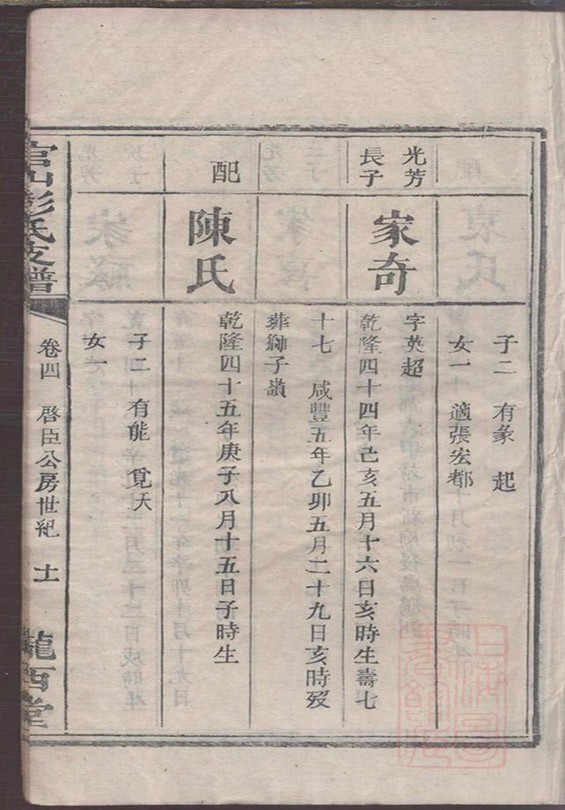 子二 有彖 起
女一 適張宏都
光芳
長子
家奇
字英超
乾隆四十四年己亥五月十六日亥時生壽七
十七 咸豐五年乙卯五月二十九日亥時歿
葬獅子嶺
配
陳氏
乾隆四十五年庚子八月十五日子時生
子二 有能
女一
官山彭氏支譜
卷四 啓臣公房世紀 十一
隴西堂